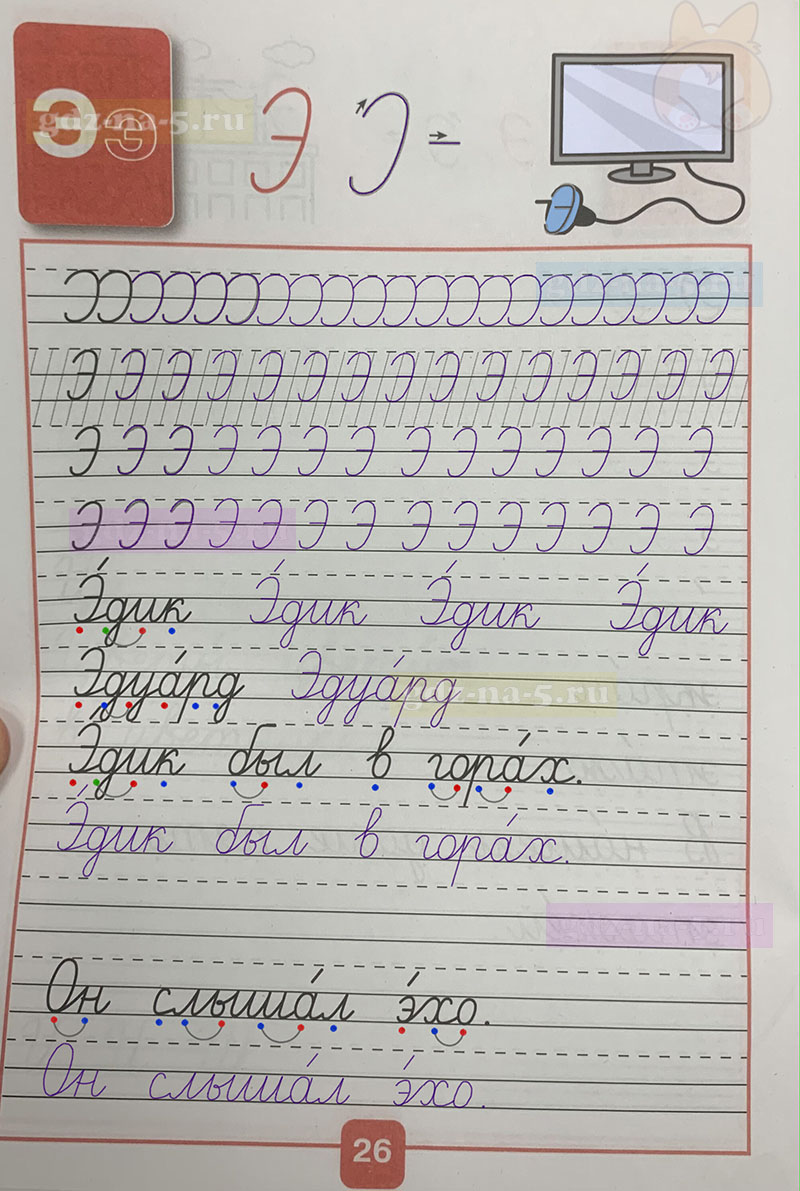 Э э
gdz-na-5.ru
Э Э -
Э Э Э Э Э Э Э Э Э Э Э Э Э Э Э
Э Э Э Э Э Э Э Э Э Э Э Э Э Э
Э Э Э Э Э Э Э Э Э Э Э Э Э Э
Э́дик Э́дик Э́дик Э́дик
Эдуа́рд Эдуа́рд
gdz-na-5.ru
Э́дик был в гора́х.
Э́дик был в гора́х.
Он слыша́л э́хо.
Он слыша́л э́хо.
26